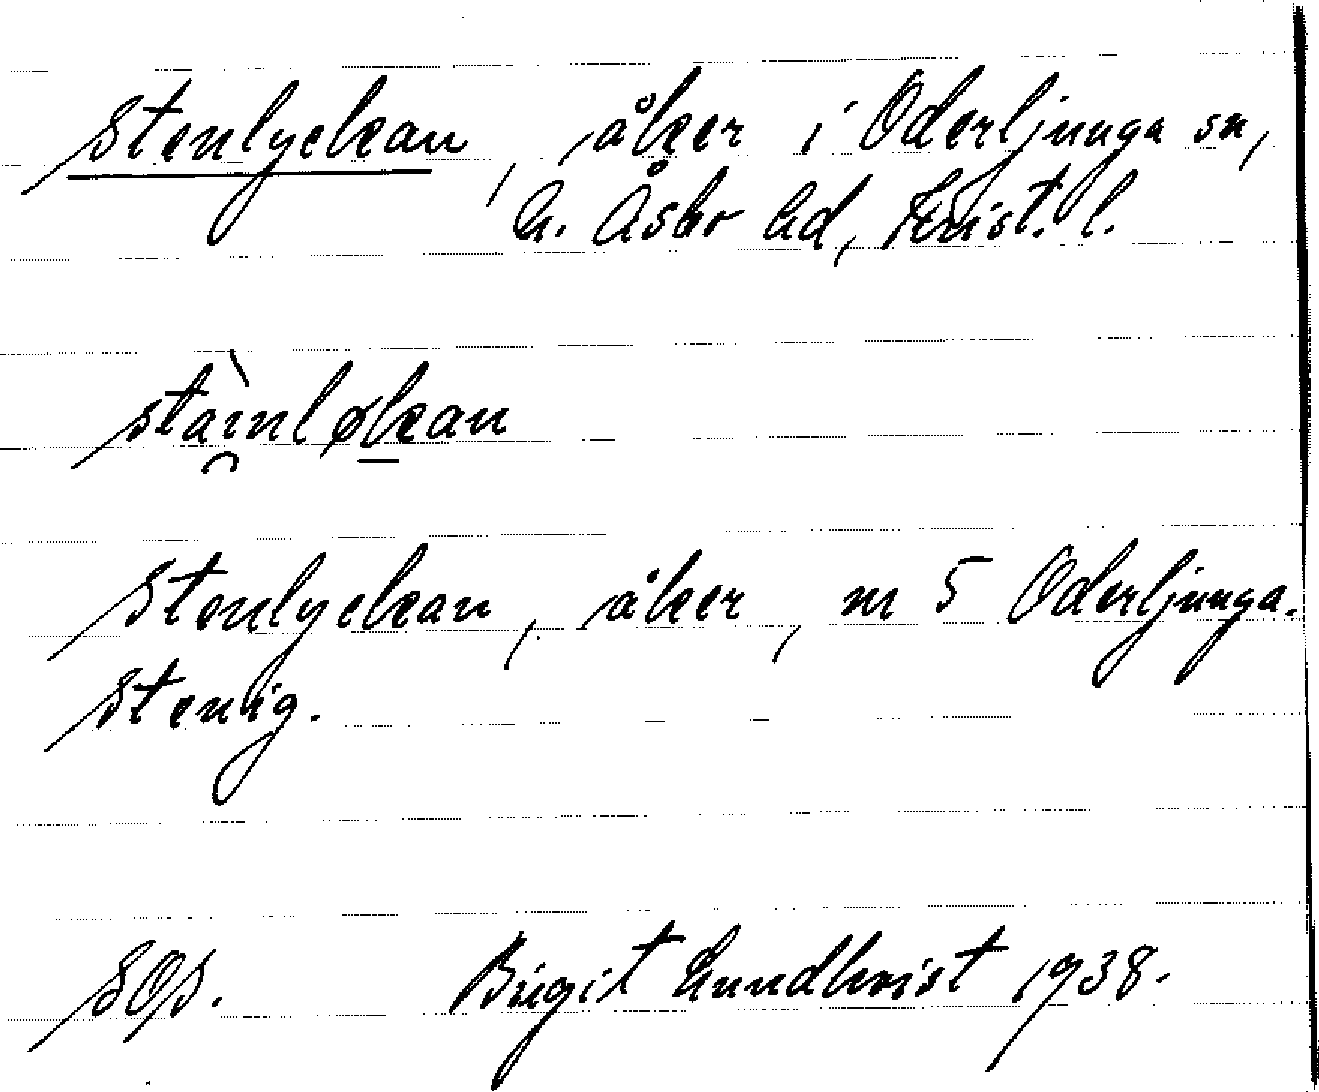 Stenlyckan, åker i Oderljunga sn,
N. Åsbo hd, Krist. l.
stàinløkan
Stenlyckan, åker, nr 5 Oderljunga.
Stenig.
SOS. Birgit Lundkvist 1938.